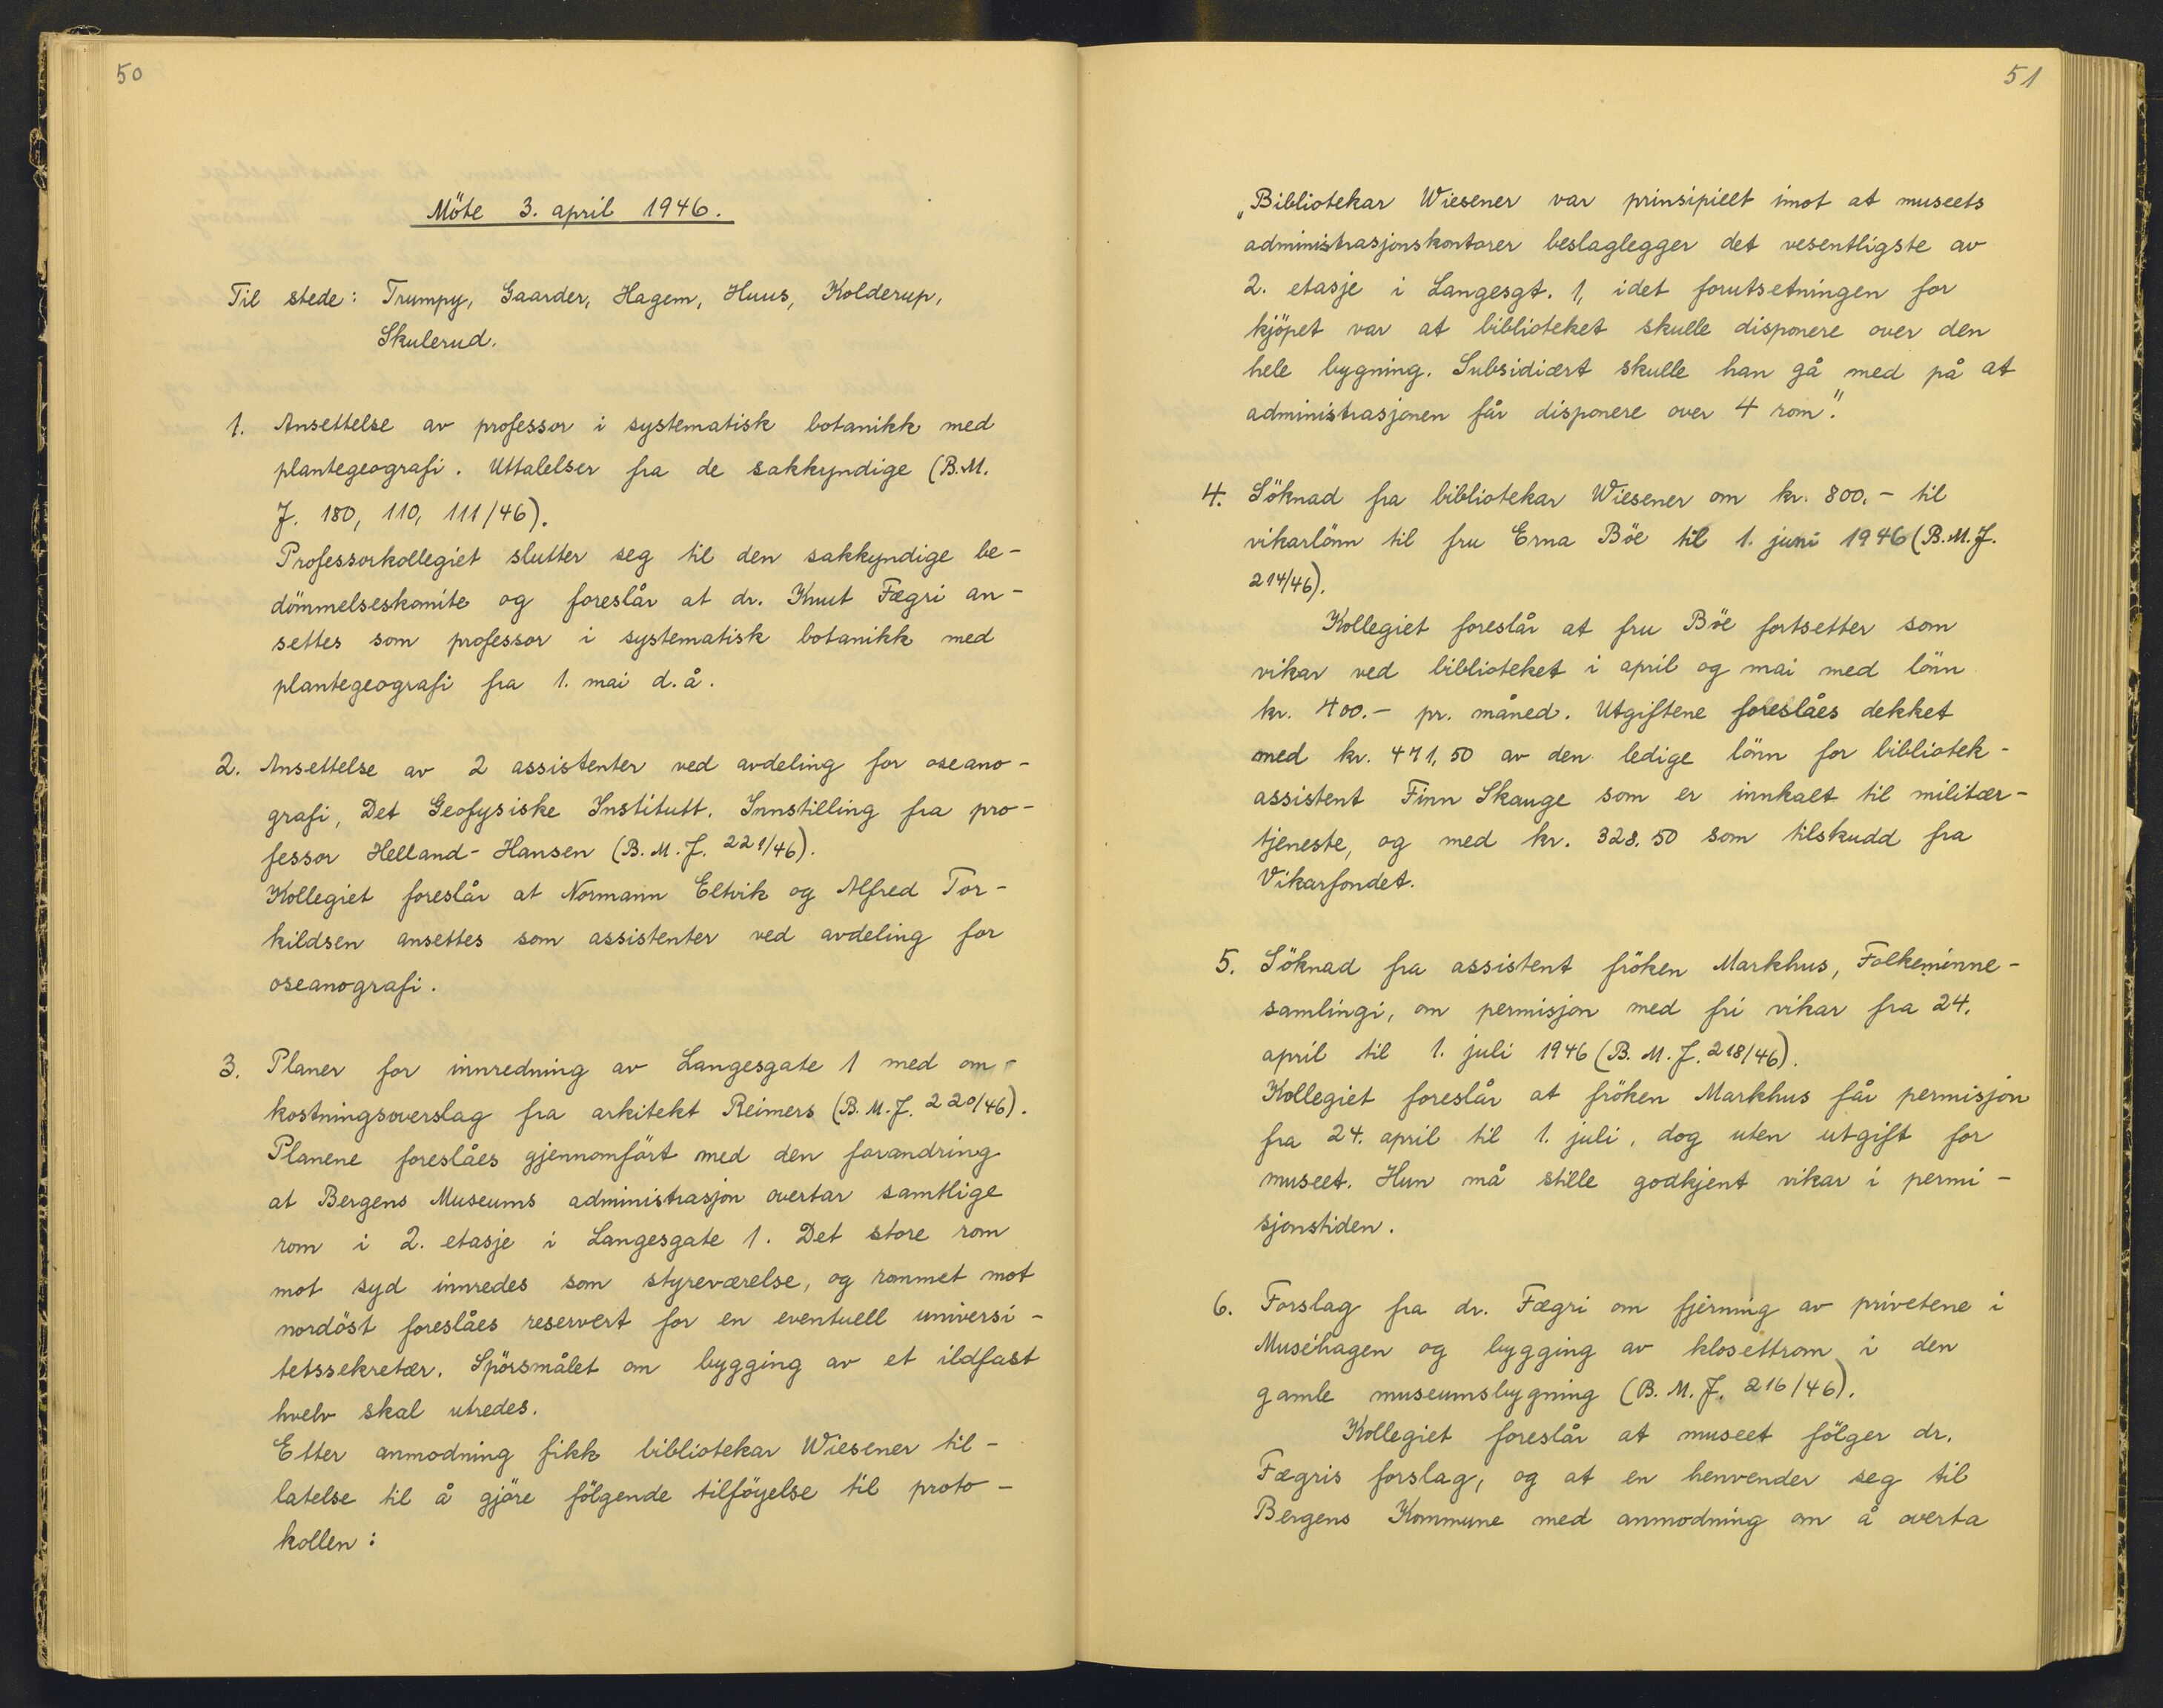 50
Möte 3. april 1946.
Til stede: Trumpy, Gaarder, Hagem, Huus, Kolderup,
Skulerud.
1. Ansettelse av professor i systematisk botanikk med
plantegeografi. Uttalelser fra de sakkyndige (B.M.
J. 180, 110, 111/46).
Professorkollegiet slutter seg til den sakkyndige be-
dömmelseskomite og foreslår at dr. Knut Fægri an-
settes som professor i systematisk botanikk med
plantegeografi fra 1. mai d.å.
2. Ansettelse av 2 assistenter ved avdeling for oseano-
grafi, Det Geofysiske Institutt. Innstilling fra pro-
fessor Helland-Hansen (B.M.J. 221/46).
Kollegiet foreslår at Normann Eltvik og Alfred Tor-
kildsen ansettes som assistenter ved avdeling for
oseanografi.
3. Planer for innredning av Langesgate 1 med om-
kostningsoverslag fra arkitekt Reimers (B.M.J. 220/46).
Planene foreslåes gjennomfört med den forandring
at Bergens Museums administrasjon overtar samtlige
rom i 2. etasje i Langesgate 1. Det store rom
mot syd innredes som styreværelse, og rommet mot
nordöst foreslåes reservert for en eventuell universi-
tetssekretær. Spörsmålet om bygging av et ildfast
hvelv skal utredes.
Etter anmodning fikk bibliotekar Wiesener til-
latelse til å gjöre fölgende tilföyelse til proto-
kollen:
51
„Bibliotekar Wiesener var prinsipielt imot at museets
administrasjonskontorer beslaglegger det vesentligste av
2. etasje i Langesgt. 1, idet forutsetningen for
kjöpet var at biblioteket skulle disponere over den
hele bygning. Subsidiært skulle han gå med på at
administrasjonen får disponere over 4 rom".
4. Söknad fra bibliotekar Wiesener om kr. 800.- til
vikarlönn til fru Erna Böe til 1. juni 1946 (B.M.J.
214/46).
Kollegiet foreslår at fru Böe fortsetter som
vikar ved biblioteket i april og mai med lönn
kr. 400.- pr. måned. Utgiftene foreslåes dekket
med kr. 471,50 av den ledige lönn for bibliotek-
assistent Finn Skauge som er innkalt til militær-
tjeneste, og med kr. 328.50 som tilskudd fra
Vikarfondet.
5. Söknad fra assistent fröken Markhus, Folkeminne-
samlingi, om permisjon med fri vikar fra 24.
april til 1. juli 1946 (B.M.J. 218/46).
Kollegiet foreslår at fröken Markhus får permisjon
fra 24. april til 1. juli, dog uten utgift for
museet. Hun må stille godkjent vikar i permi-
sjonstiden.
6. Forslag fra dr. Fægri om fjerning av privetene i
Muséhagen og bygging av klosettrom i den
gamle museumsbygning (B.M.J. 216/46).
Kollegiet foreslår at museet fölger dr.
Fægris forslag, og at en henvender seg til
Bergens Kommune med anmodning om å overta